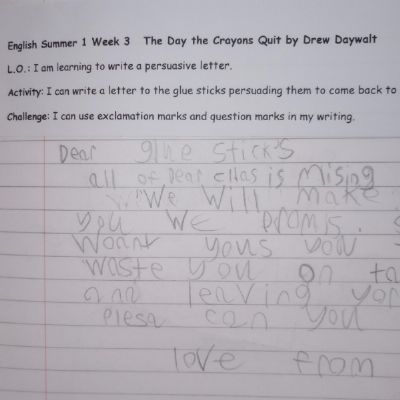 English Summer 1 Week 3 The Day the Crayons Quit by Drew Daywalt
L.O.: I am learning to write a persuasive letter.
Activity: I can write a letter to the glue sticks persuading them to come back to
Challenge: I can use exclamation marks and question marks in my writing.
Dear glue sticks
all of Dear cllas is Mising
We Will make
you We promis.
Woant yous you
waste you on ta
and leaving yor
plesa can you
love from